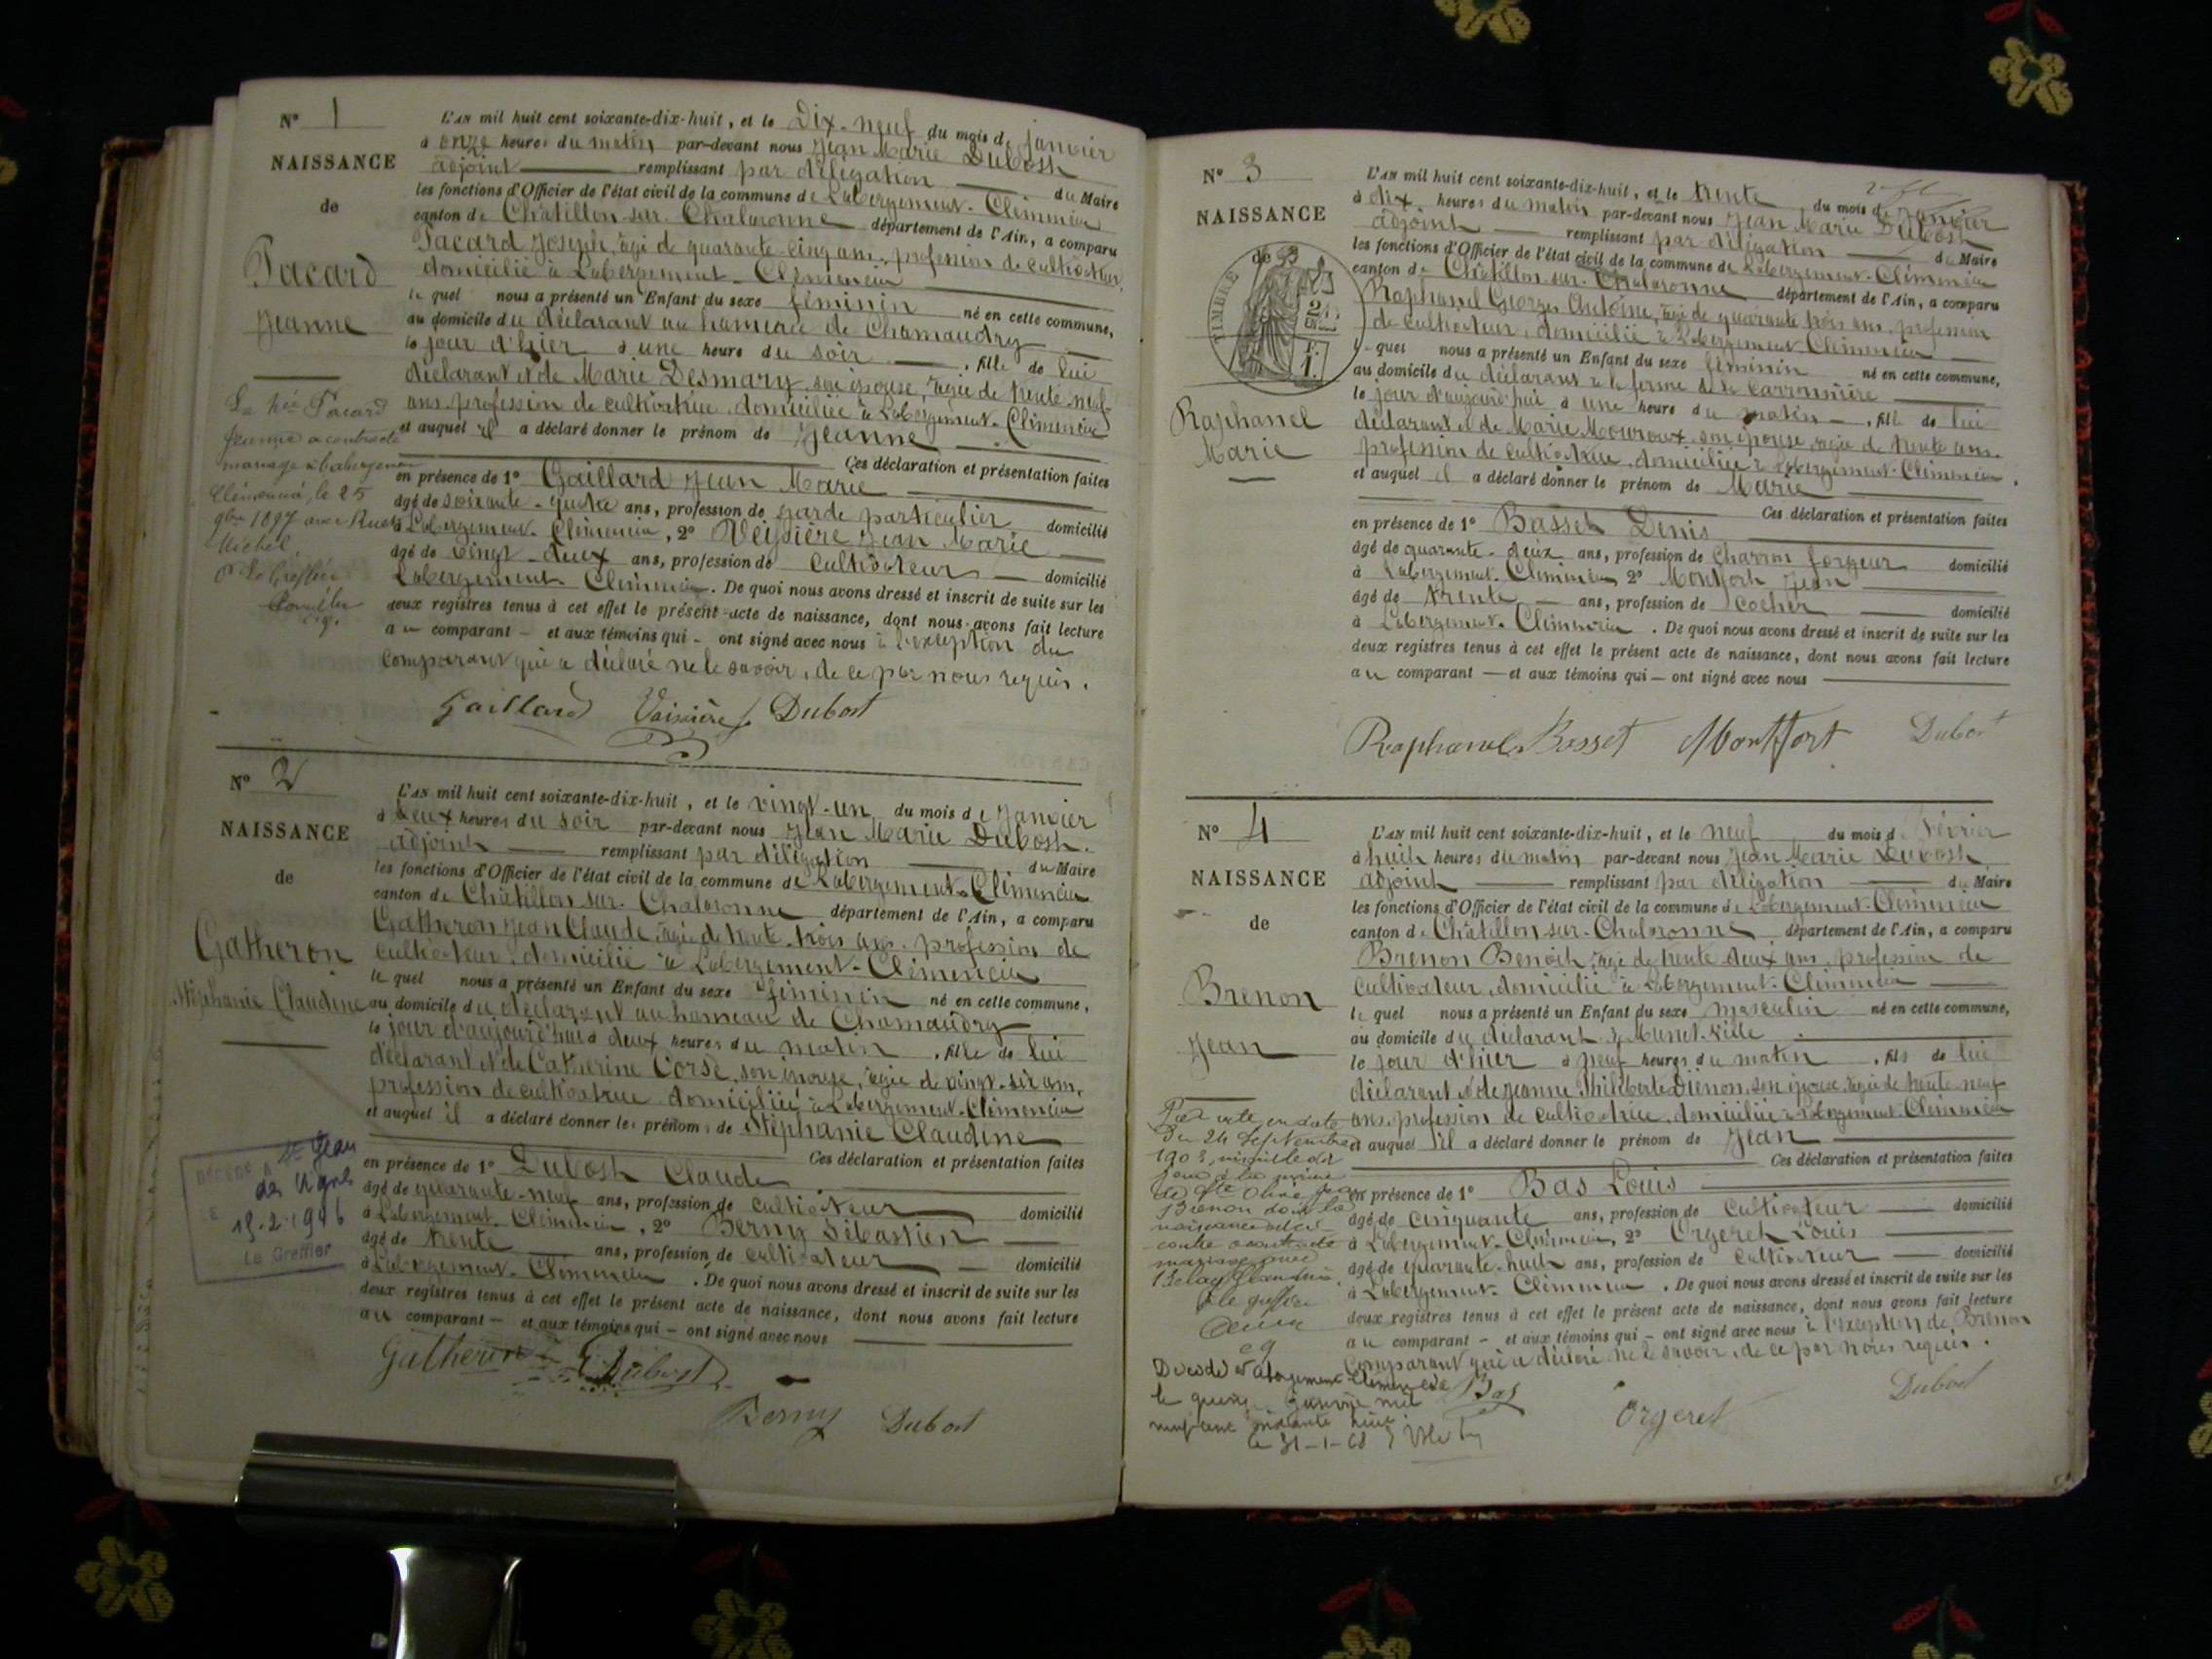 N° 1
NAISSANCE
de
Pacard
Jeanne
La née Pacard
Jeanne a contracté
mariage à l'abergement
Clémencia, le 25
9bre 1897 avec
Michel.
Le Greffier
L'AN mil huit cent soixante-dix-huit, et le Dix-neuf du mois de janvier
à onze heures du matin par-devant nous Jean Marie Dubost
adjoint remplissant par délégation du Maire
les fonctions d'Officier de l'état civil de la commune de Labergement-Clémencia
canton de Châtillon-sur-Chalaronne département de l'Ain, a comparu
Pacard Joseph, âgé de quarante-cinq ans, profession de cultivateur,
domicilié à Labergement-Clémencia
lequel nous a présenté un Enfant du sexe féminin né en cette commune,
au domicile du déclarant au hameau de Chamaudry
le jour d'hier à une heure du soir, fille de lui
déclarant et de Marie Desmary son épouse, âgée de trente-neuf
ans, profession de cultivatrice, domiciliée à Labergement-Clémencia
et auquel il a déclaré donner le prénom de Jeanne
Ces déclaration et présentation faites
en présence de 1° Gaillard Jean Marie
âgé de soixante-quatre ans, profession de garde particulier domicilié
à Labergement-Clémencia, 2° Veissière Jean Marie
âgé de vingt-deux ans, profession de cultivateur domicilié
Labergement-Clémencia. De quoi nous avons dressé et inscrit de suite sur les
deux registres tenus à cet effet le présent acte de naissance, dont nous avons fait lecture
au comparant - et aux témoins qui - ont signé avec nous à l'exception du
comparant qui a déclaré ne le savoir, de ce par nous requis.
Gaillard Vaissière Dubost
N° 2
NAISSANCE
de
Gatheron
Stéphanie Claudine
DÉCÉDÉ A St Jean
des Vignes
LE 18-2-1946
Le Greffier
L'AN mil huit cent soixante-dix-huit, et le vingt-un du mois de Janvier
à deux heures du soir par-devant nous Jean Marie Dubost.
adjoint remplissant par délégation du Maire
les fonctions d'Officier de l'état civil de la commune de Labergement-Clémencia
canton de Châtillon-sur-Chalaronne département de l'Ain, a comparu
Gatheron Jean Claude, âgé de trente-trois ans, profession de
cultivateur, domicilié à Labergement-Clémencia
lequel nous a présenté un Enfant du sexe féminin né en cette commune,
au domicile du déclarant au hameau de Chamaudry
le jour d'aujourd'hui à deux heures du matin, fille de lui
déclarant et de Catherine Corse, son épouse, âgée de vingt-six ans,
profession de cultivatrice domiciliée à Labergement-Clémencia
et auquel il a déclaré donner les prénoms de Stéphanie Claudine
Ces déclaration et présentation faites
en présence de 1° Dubost Claude
âgé de quarante-neuf ans, profession de cultivateur domicilié
à Labergement-Clémencia, 2° Berny Sébastien
âgé de trente ans, profession de cultivateur domicilié
à Labergement-Clémencia. De quoi nous avons dressé et inscrit de suite sur les
deux registres tenus à cet effet le présent acte de naissance, dont nous avons fait lecture
au comparant - et aux témoins qui - ont signé avec nous
Gatheron Dubost
Berny Dubost
N° 3
NAISSANCE
de
TIMBRE
Raphanel
Marie
L'AN mil huit cent soixante-dix-huit, et le trente du mois de janvier
à dix heures du matin par-devant nous Jean Marie Dubost
adjoint remplissant par délégation du Maire
les fonctions d'Officier de l'état civil de la commune de Labergement-Clémencia
canton de Châtillon-sur-Chalaronne département de l'Ain, a comparu
Raphanel Georges Antoine, âgé de quarante trois ans, profession
de cultivateur, domicilié à Labergement-Clémencia
lequel nous a présenté un Enfant du sexe féminin né en cette commune,
au domicile du déclarant à la ferme de la Carronnière
le jour d'aujourd'hui à une heure du matin, fille de lui
déclarant et de Marie Mouroux son épouse, âgée de trente ans,
profession de cultivatrice, domiciliée à Labergement-Clémencia.
et auquel il a déclaré donner le prénom de Marie
Ces déclaration et présentation faites
en présence de 1° Basset Denis
âgé de quarante-deux ans, profession de charron forgeur domicilié
à Labergement-Clémencia, 2° Montfort Jean
âgé de trente ans, profession de cocher domicilié
à Labergement-Clémencia. De quoi nous avons dressé et inscrit de suite sur les
deux registres tenus à cet effet le présent acte de naissance, dont nous avons fait lecture
au comparant - et aux témoins qui - ont signé avec nous
Raphanel Basset Montfort Dubost
N° 4
NAISSANCE
de
Brenon
Jean
Par acte en date
du 24 Septembre
1903,
de Ste Olive, Jean
Brenon dont la
naissance est ci-
contre a contracté
mariage avec
Le greffier
Décédé à l'abergement-Clémencia
le quinze janvier mil
neuf cent soixante huit
le 31-1-68
L'AN mil huit cent soixante-dix-huit, et le neuf du mois de février
à huit heures du matin par-devant nous Jean Marie Dubost
adjoint remplissant par délégation du Maire
les fonctions d'Officier de l'état civil de la commune de Labergement-Clémencia
canton de Châtillon-sur-Chalaronne département de l'Ain, a comparu
Brenon Benoît, âgé de trente deux ans, profession de
cultivateur, domicilié à Labergement-Clémencia
lequel nous a présenté un Enfant du sexe masculin né en cette commune,
au domicile du déclarant à
le jour d'hier à neuf heures du matin, fils de lui
déclarant et de Jeanne Philiberte Drenon, son épouse, âgée de trente-neuf
ans, profession de cultivatrice, domiciliée à Labergement-Clémencia
et auquel il a déclaré donner le prénom de Jean
Ces déclaration et présentation faites
en présence de 1° Bas Louis
âgé de cinquante ans, profession de cultivateur domicilié
à Labergement-Clémencia, 2° Orgeret Louis
âgé de quarante-huit ans, profession de cultivateur domicilié
à Labergement-Clémencia. De quoi nous avons dressé et inscrit de suite sur les
deux registres tenus à cet effet le présent acte de naissance, dont nous avons fait lecture
au comparant - et aux témoins qui - ont signé avec nous à l'exception de Brenon
comparant qui a déclaré ne le savoir, de ce par nous requis.
Bas Orgeret Dubost